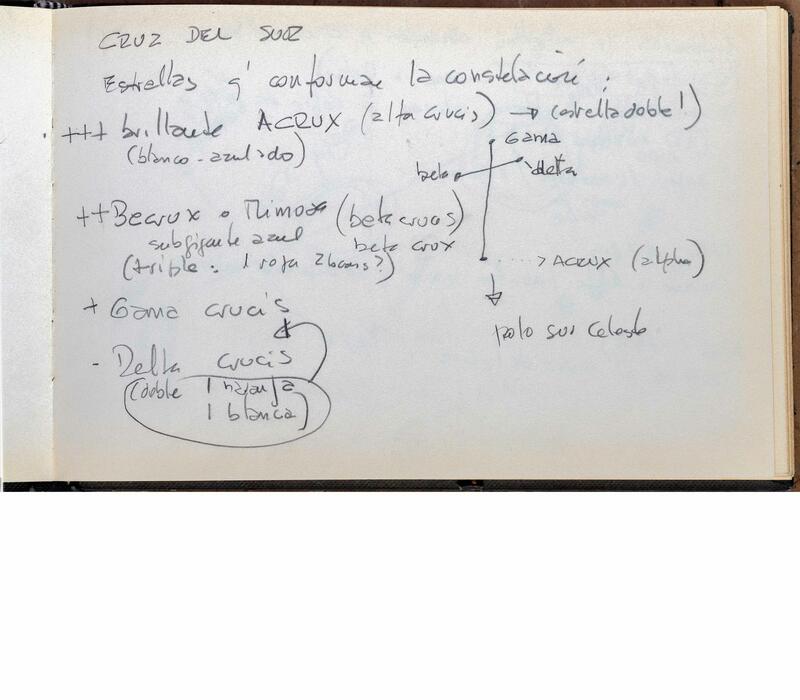 CRUZ DEL SUR
Estrellas q' conforman la constelación:
+++ brillante ACRUX (alfa crucis) → (estrella doble!)
(blanco-azulado)
Gama
beta
delta
++ Becrux o Mimosa (beta crucis)
subgigante azul
beta crux
(triple: 1 roja 2
ACRUX (alpha)
+ Gama crucis
polo sur celeste
- Delta crucis
(doble 1 naranja
1 blanca)